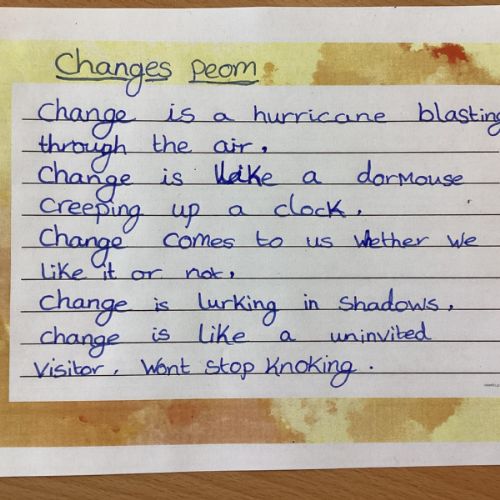 Changes peom
Change is a hurricane blasting
through the air,
Change is like a dormouse
creeping up a clock.
Change comes to us wether we
like it or not,
Change is lurking in shadows,
change is like a uninvited
visitor. Wont stop knoking.